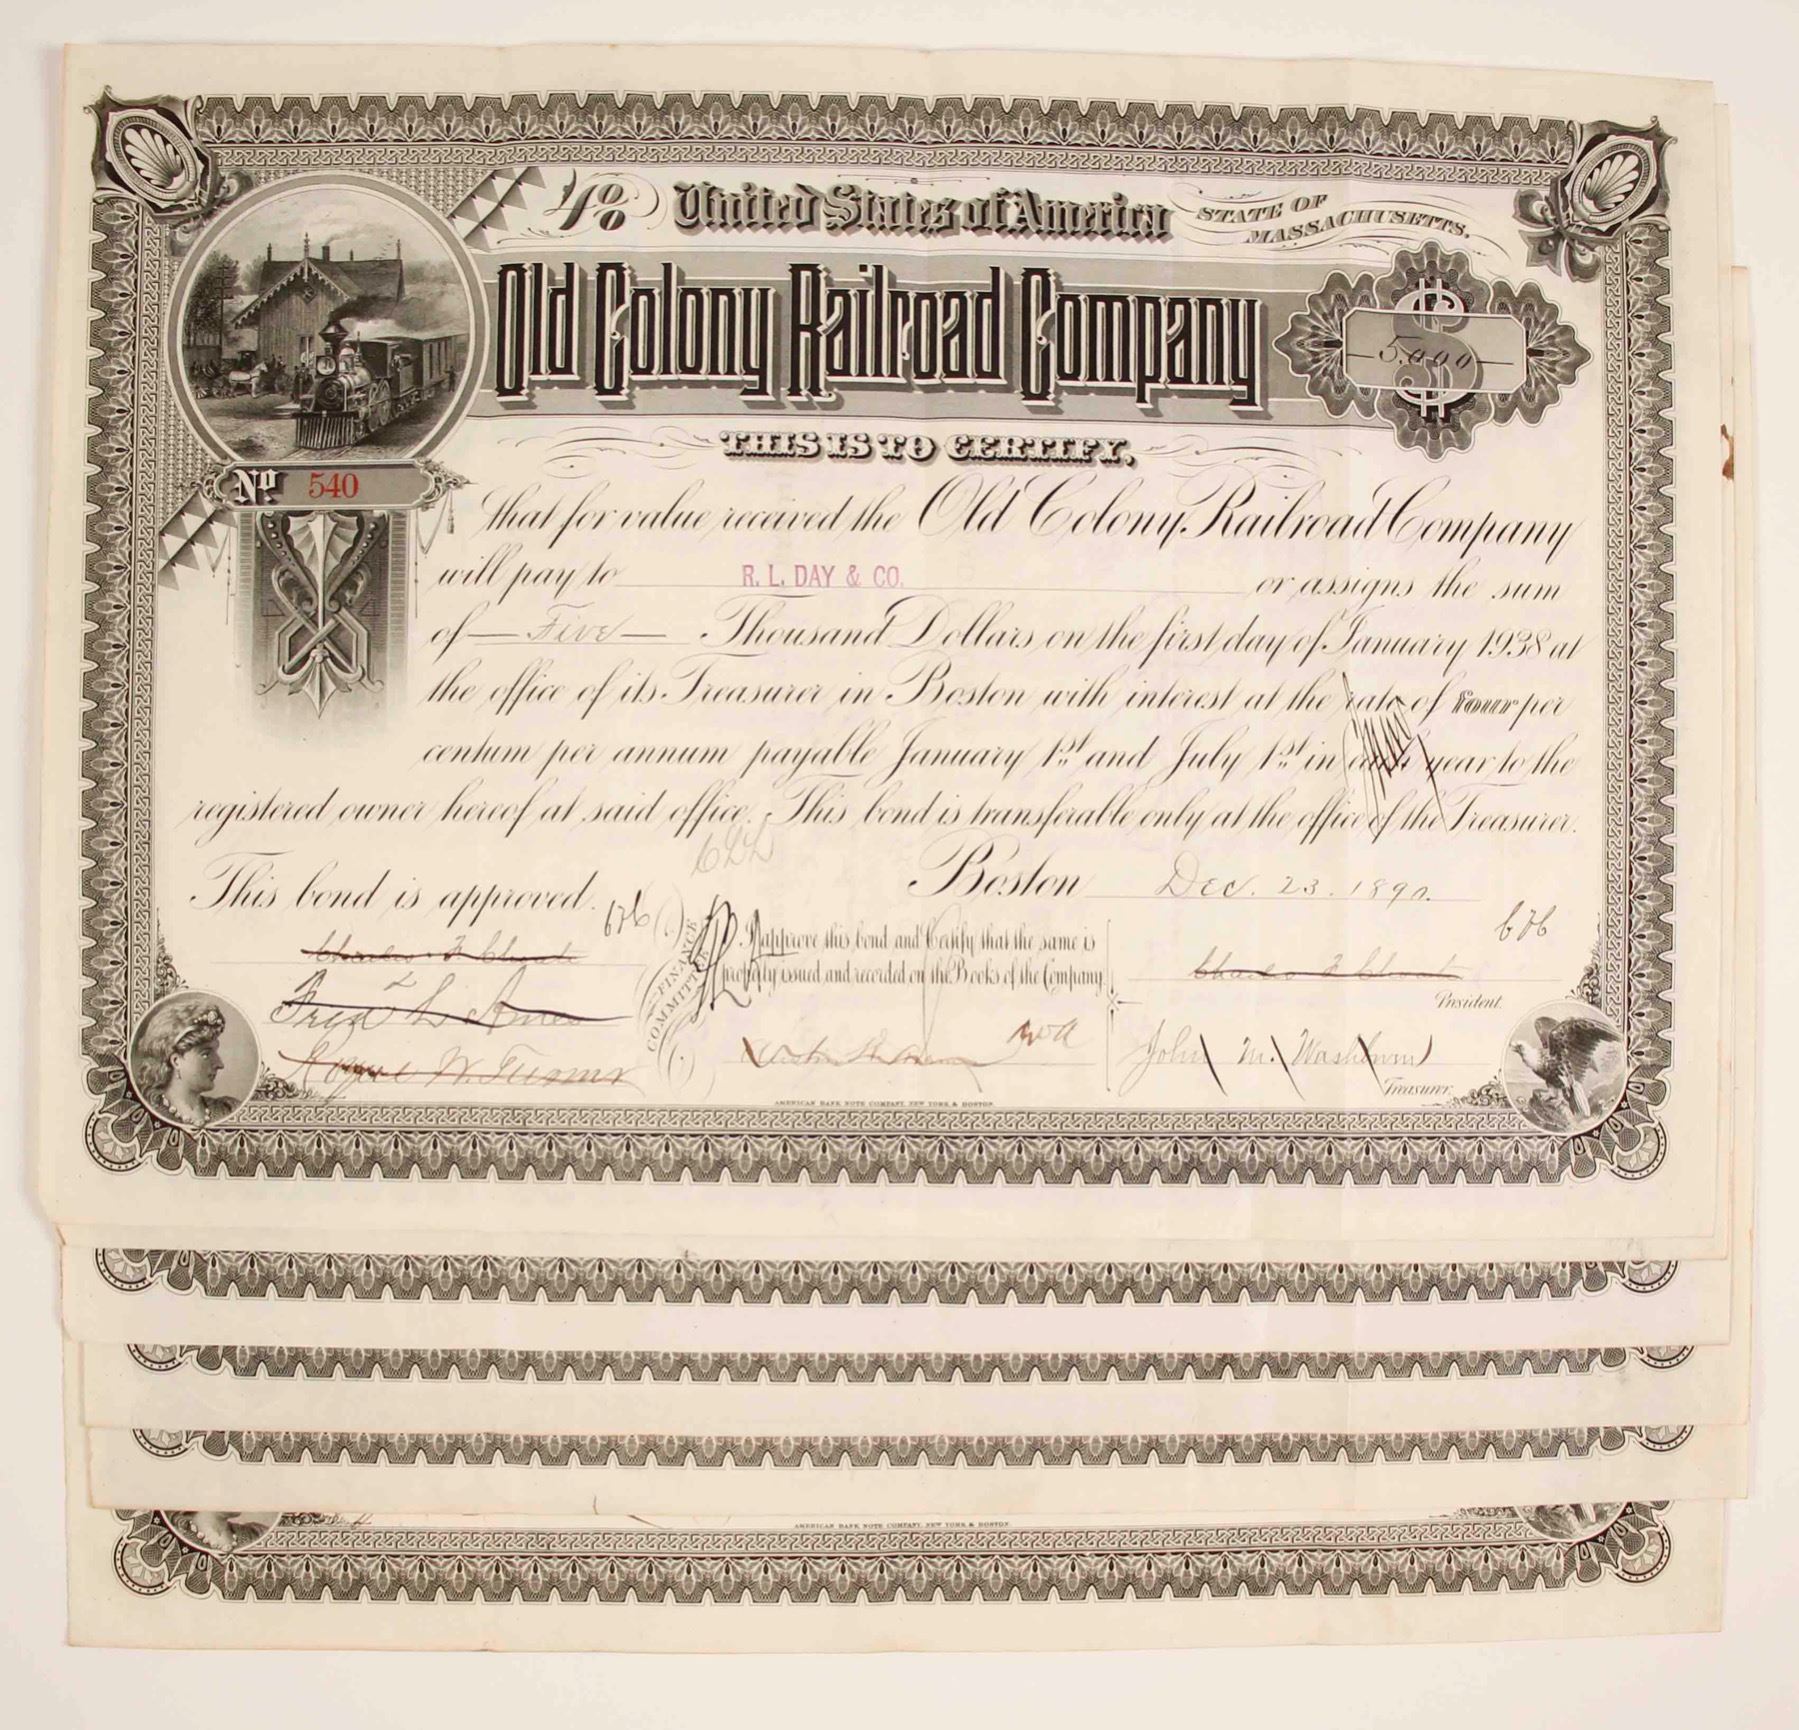 4% United States of America STATE OF MASSACHUSETTS.
Old Colony Railroad Company
$ 5.000
THIS IS TO CERTIFY,
No 540
that for value received the Old Colony Railroad Company
will pay to R. L. DAY & CO. or assigns the sum
of Five Thousand Dollars on the first day of January 1938 at
the office of its Treasurer in Boston with interest at the rate of four per
centum per annum payable January 1st and July 1st in each year to the
registered owner hereof at said office. This bond is transferable only at the office of the Treasurer.
Boston Dec. 23. 1890.
This bond is approved.
FINANCE COMMITTEE
I approve this bond and Certify that the same is
properly issued and recorded on the Books of the Company.
Charles F. Choate
Charles F. Choate
President.
John M. Washburn
Treasurer.
AMERICAN BANK NOTE COMPANY, NEW YORK & BOSTON.
AMERICAN BANK NOTE COMPANY, NEW YORK & BOSTON.